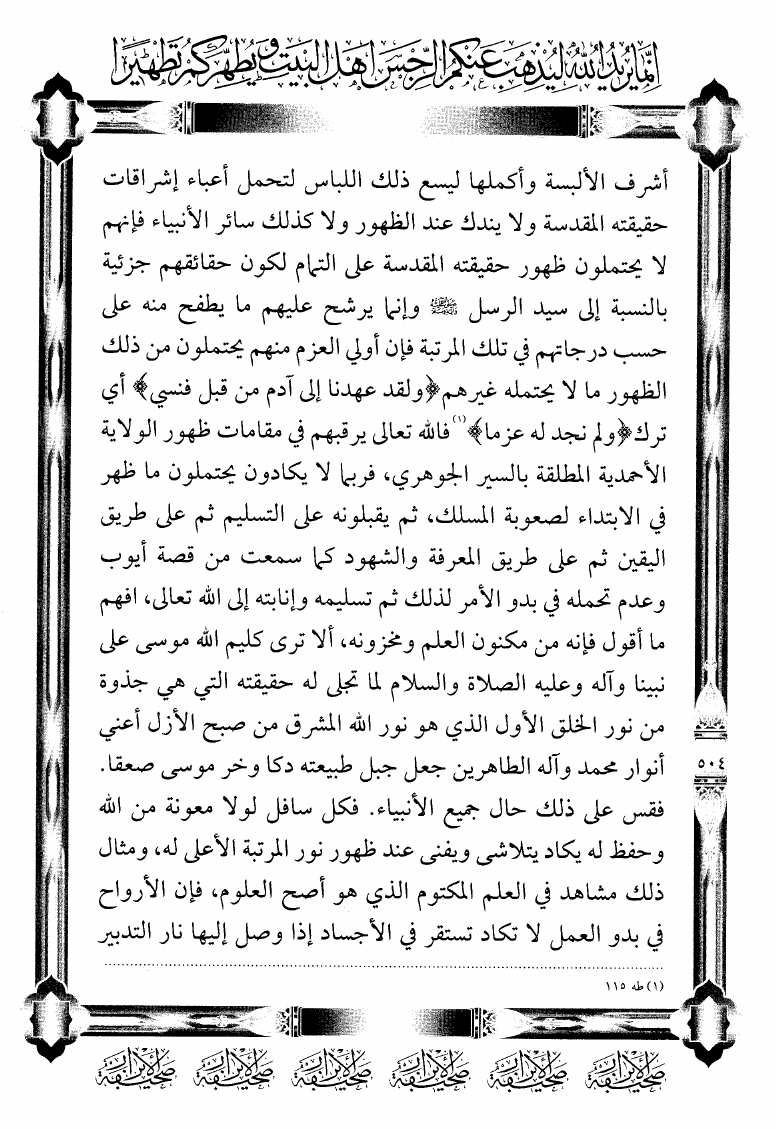 إنما يريد الله ليذهب عنكم الرجس اهل البيت ويطهركم تطهيرا
أشرف الألبسة وأكملها ليسع ذلك اللباس لتحمل أعباء إشراقات
حقيقته المقدسة ولا يندك عند الظهور ولا كذلك سائر الأنبياء فإنهم
لا يحتملون ظهور حقيقته المقدسة على التمام لكون حقائقهم جزئية
بالنسبة إلى سيد الرسل ﷺ وإنما يرشح عليهم ما يطفح منه على
حسب درجاتهم في تلك المرتبة فإن أولي العزم منهم يحتملون من ذلك
الظهور ما لا يحتمله غيرهم ﴿ولقد عهدنا إلى آدم من قبل فنسي﴾ أي
ترك ﴿ولم نجد له عزما﴾(١) فالله تعالى يرقبهم في مقامات ظهور الولاية
الأحمدية المطلقة بالسير الجوهري، فربما لا يكادون يحتملون ما ظهر
في الابتداء لصعوبة المسلك، ثم يقبلونه على التسليم ثم على طريق
اليقين ثم على طريق المعرفة والشهود كما سمعت من قصة أيوب
وعدم تحمله في بدو الأمر لذلك ثم تسليمه وإنابته إلى الله تعالى، افهم
ما أقول فإنه من مكنون العلم ومخزونه، ألا ترى كليم الله موسى على
نبينا وآله وعليه الصلاة والسلام لما تجلى له حقيقته التي هي جذوة
من نور الخلق الأول الذي هو نور الله المشرق من صبح الأزل أعني
أنوار محمد وآله الطاهرين جعل جبل طبيعته دكا وخر موسى صعقا.
فقس على ذلك حال جميع الأنبياء. فكل سافل لولا معونة من الله
وحفظ له يكاد يتلاشى ويفنى عند ظهور نور المرتبة الأعلى له، ومثال
ذلك مشاهد في العلم المكتوم الذي هو أصح العلوم، فإن الأرواح
في بدو العمل لا تكاد تستقر في الأجساد إذا وصل إليها نار التدبير
٥٠٤
(١) طه ١١٥
صحيفة الأبرار صحيفة الأبرار صحيفة الأبرار صحيفة الأبرار صحيفة الأبرار صحيفة الأبرار